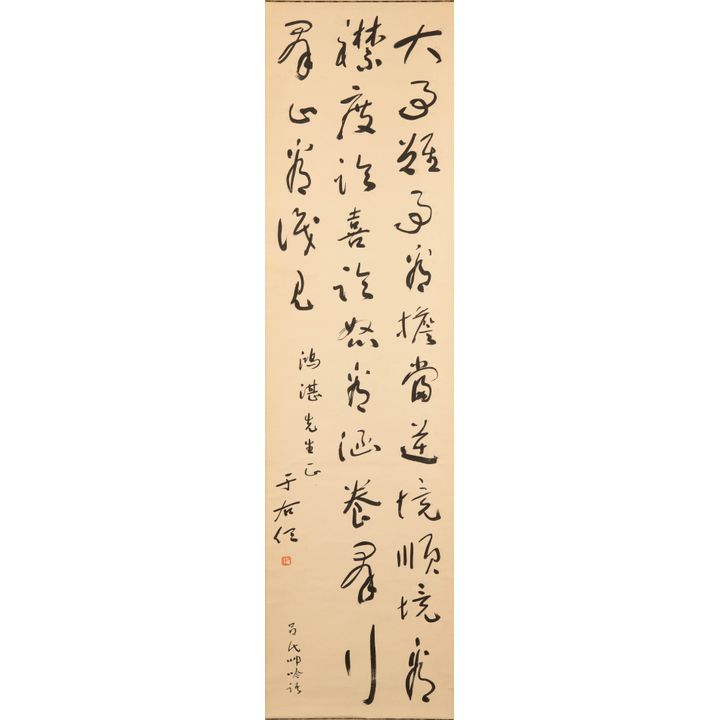 大事難事看擔當逆境順境看
襟度臨喜臨怒看涵養群行
群止看識見
鴻湛先生正
于右任
呂氏呻吟語